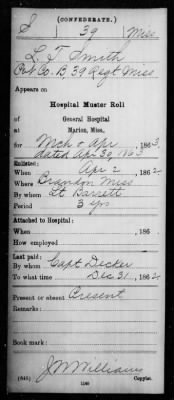 (CONFEDERATE.)
S 39 Miss
L. T. Smith
Pvt Co. B, 39 Regt Miss
Appears on
Hospital Muster Roll
of
General Hospital
at
Marion, Miss.,
for Mch & Apr, 1863.
dated Apr 30, 1863
Enlisted:
When Apr 2, 1862.
Where Brandon Miss
By whom Lt Barrett
Period 3 yrs
Attached to Hospital:
When , 186 .
How employed
Last paid:
By whom Capt Decker
To what time Dec 31, 1862.
Present or absent Present
Remarks:
Book mark:
J W Williams
Copyist.